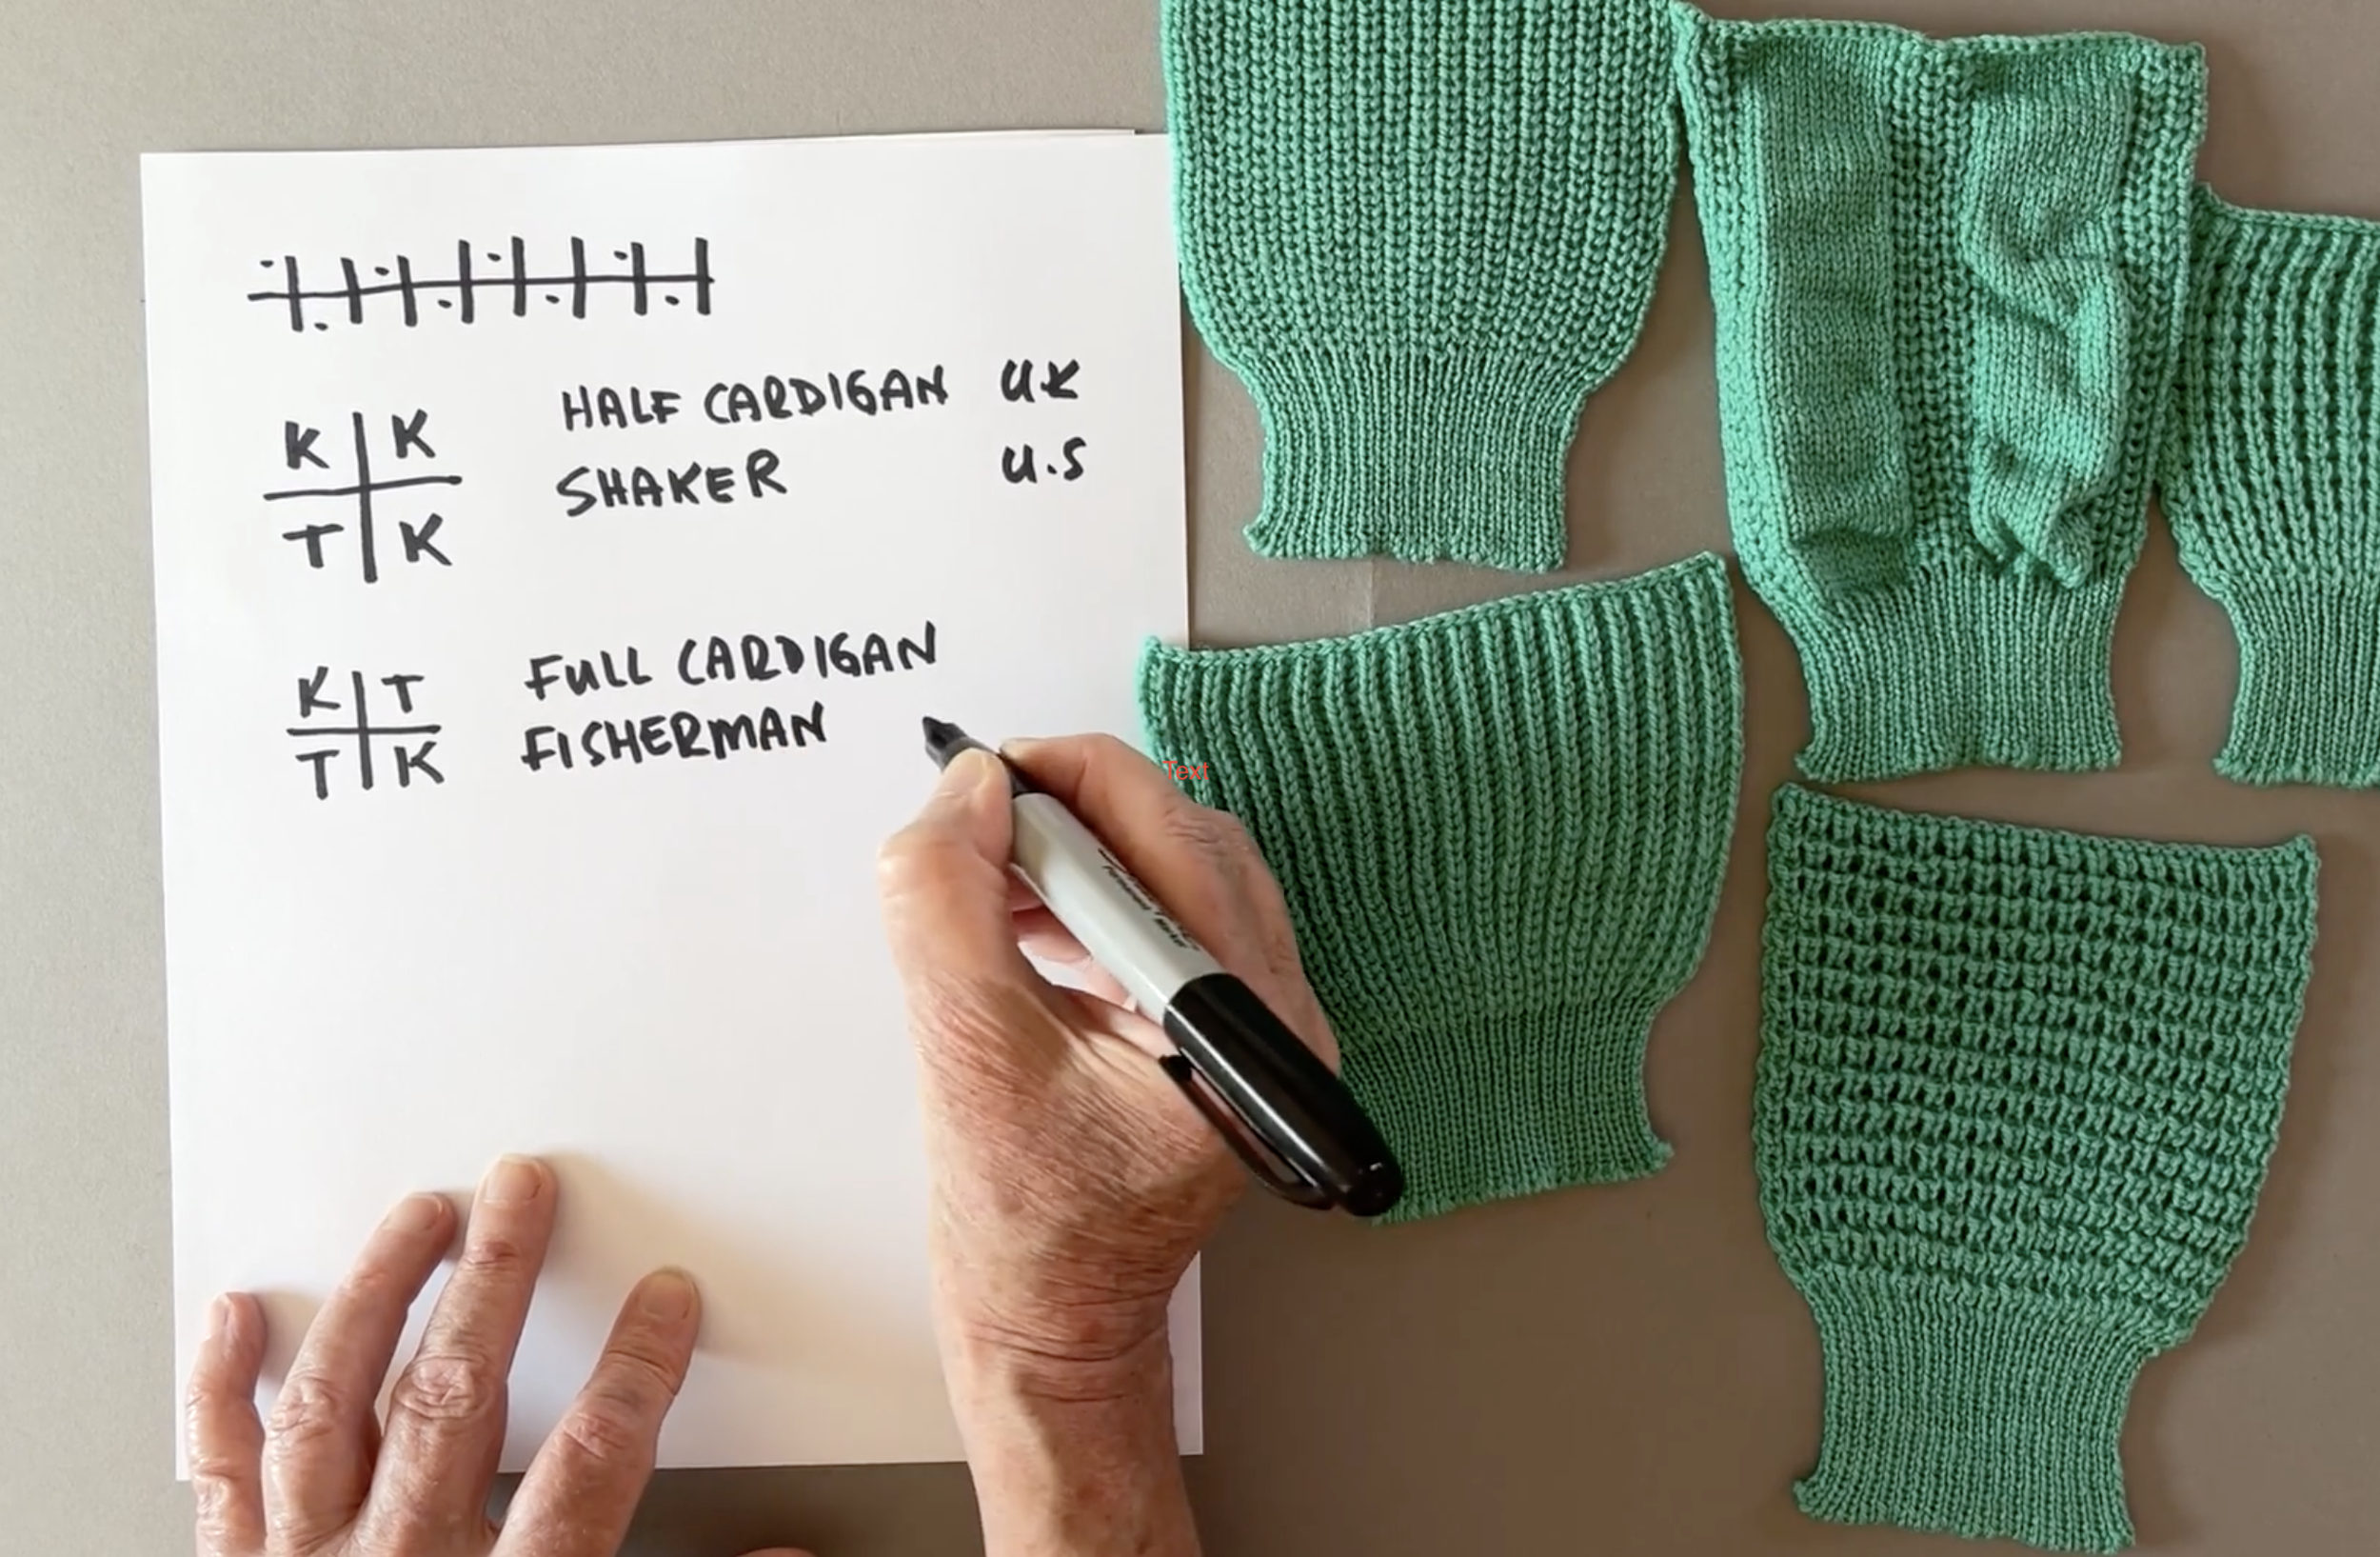 K K
T K
HALF CARDIGAN UK
SHAKER U.S
K T
T K
FULL CARDIGAN
FISHERMAN
Text